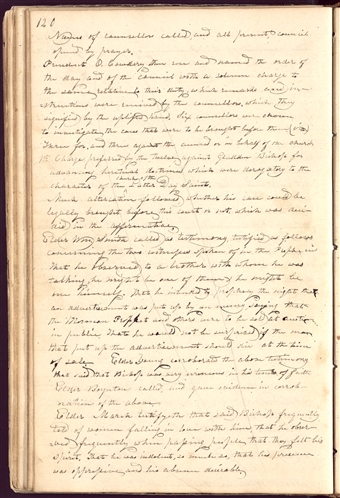 120
Names of councillors called, and all present, council
opened by prayer.
President O. Cowdery then rose and named the order of
the day and of the council with a solemn charge to
the same relative to their duty, which remarks and in-
structions were received by the councillors, which they
signified by the uplifted hand. Six councillors were chosen
to investigate the case that were to be brought before them (viz)
Three for, and three against the accused or in behalf of the church
1st Charge preferred by the Twelve against Gladden Bishop for
advancing heretical doctrines which were derogatory to the
character of the church of the Latter Day Saints.
Much altercation followed, whether his case could be
legally brought before this court or not, which was deci-
ded in the affirmative.
Elder Wm Smith called as testimony, testified as follows
concerning the two witnesses spoken of in the
That he observed to a brother with whom he was
talking he might be one of them, & he might be
one himself. That he intended to prophesy the night that
an advertisement was put up by a saying that
the Mormon Prophet and others were to be sold at auction
in public. That he would not be surprised if the man
that put up the advertisement should die at the time
of sale. Elder Young corroborated the above testimony
that said that Bishop was very erroneous in his tenets of faith
Elder Boynton called, and gave evidence in corrob-
oration of the above.
Elder Marsh testifyeth that said Bishop frequently
told of women falling in love with him, that he
and frequently when passing people, that they felt his
spirit. That he was indolent, so much so, that his presence
was oppressive and his absence desirable